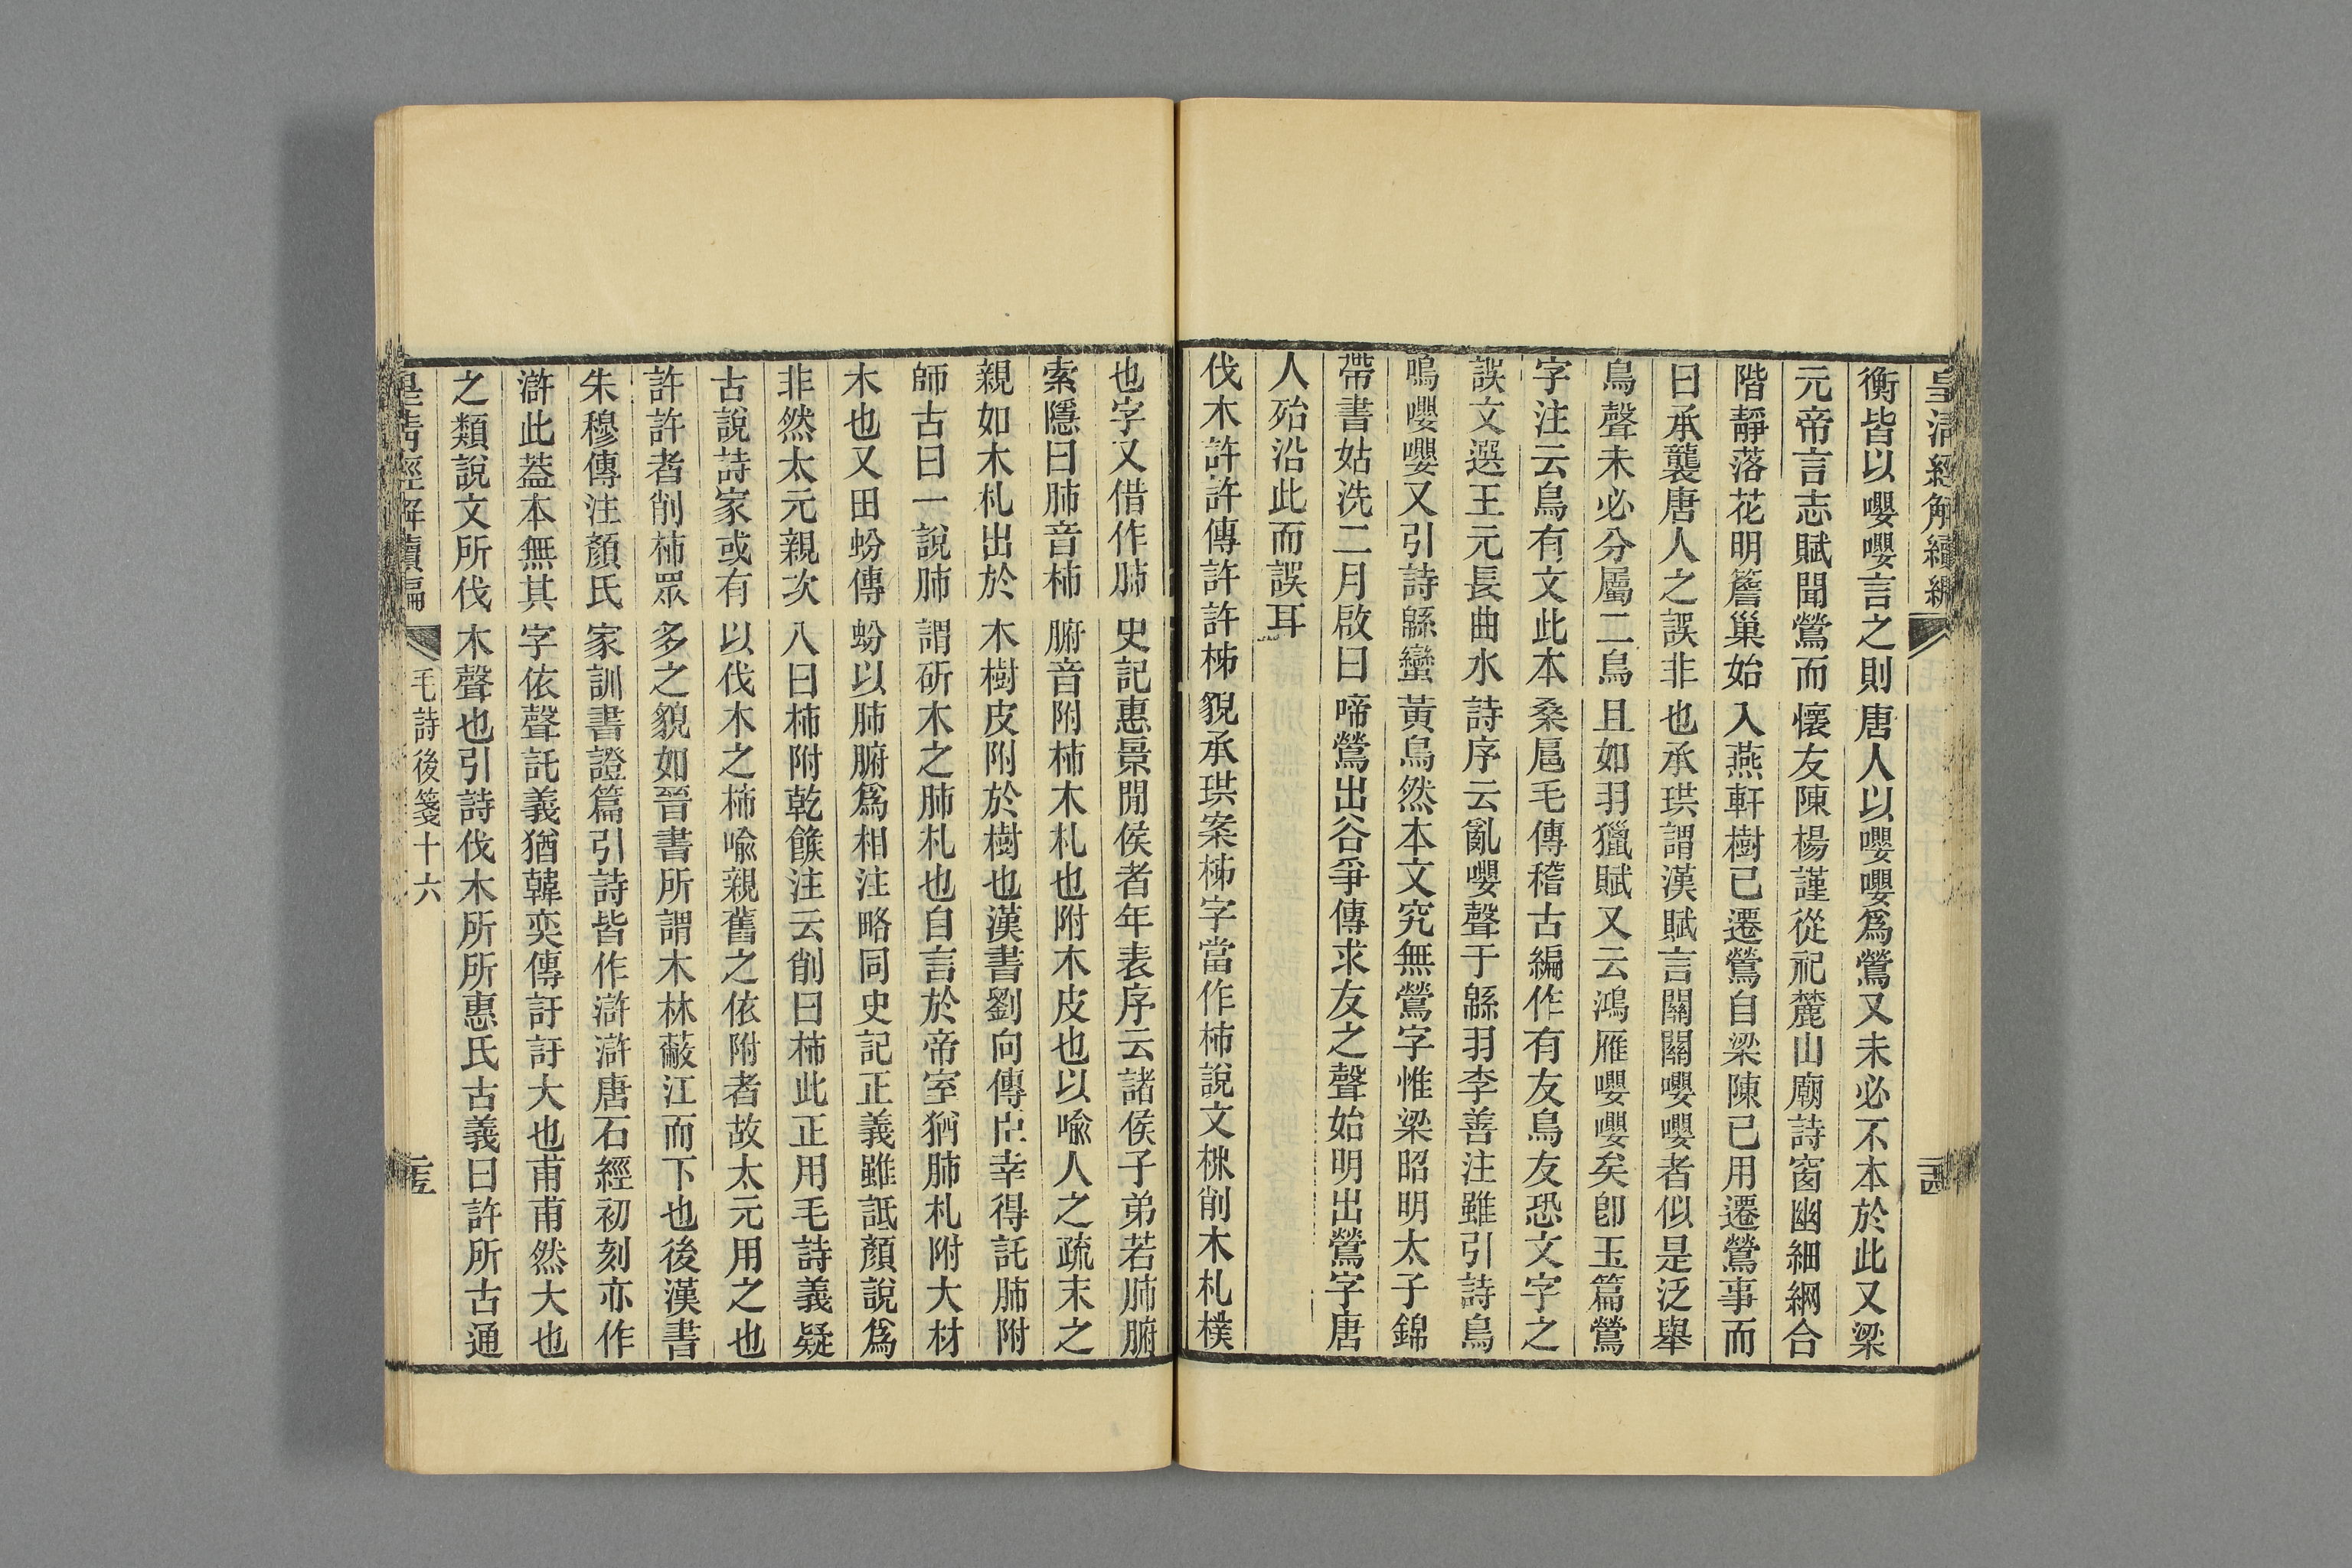 皇清經解續編
衡皆以嚶嚶言之則唐人以嚶嚶爲鶯又未必不本於此又梁
元帝言志賦聞鶯而懷友陳楊謹從祀麓山廟詩窗幽細網合
階靜落花明簷巢始入燕軒樹已遷鶯自梁陳已用遷鶯事而
曰承襲唐人之誤非也承珙謂漢賦言關關嚶嚶者似是泛舉
鳥聲未必分屬二鳥且如羽獵賦又云鴻雁嚶嚶矣卽玉篇鶯
字注云鳥有文此本桑扈毛傳稽古編作有友鳥友恐文字之
誤文選王元長曲水詩序云亂嚶聲于緜羽李善注雖引詩鳥
鳴嚶嚶又引詩緜蠻黃鳥然本文究無鶯字惟梁昭明太子錦
帶書姑洗二月啟曰啼鶯出谷爭傳求友之聲始明出鶯字唐
人殆沿此而誤耳
伐木許許傳許許柹貌承珙案柹字當作柿說文柹削木札樸
也字又借作肺史記惠景閒侯者年表序云諸侯子弟若肺腑
索隱曰肺音柿腑音附柿木札也附木皮也以喩人之疏末之
親如木札出於木樹皮附於樹也漢書劉向傳臣幸得託肺附
師古曰一說肺謂斫木之肺札也自言於帝室猶肺札附大材
木也又田蚡傳蚡以肺腑爲相注略同史記正義雖詆顏說爲
非然太元親次八曰柿附乾餱注云削曰柿此正用毛詩義疑
古說詩家或有以伐木之柿喩親舊之依附者故太元用之也
許許者削柿眾多之貌如晉書所謂木林蔽江而下也後漢書
朱穆傳注顏氏家訓書證篇引詩皆作滸滸唐石經初刻亦作
滸此蓋本無其字依聲託義猶韓奕傳訏訏大也甫甫然大也
之類說文所伐木聲也引詩伐木所所惠氏古義曰許所古通
皇清經解續編
毛詩後箋十六